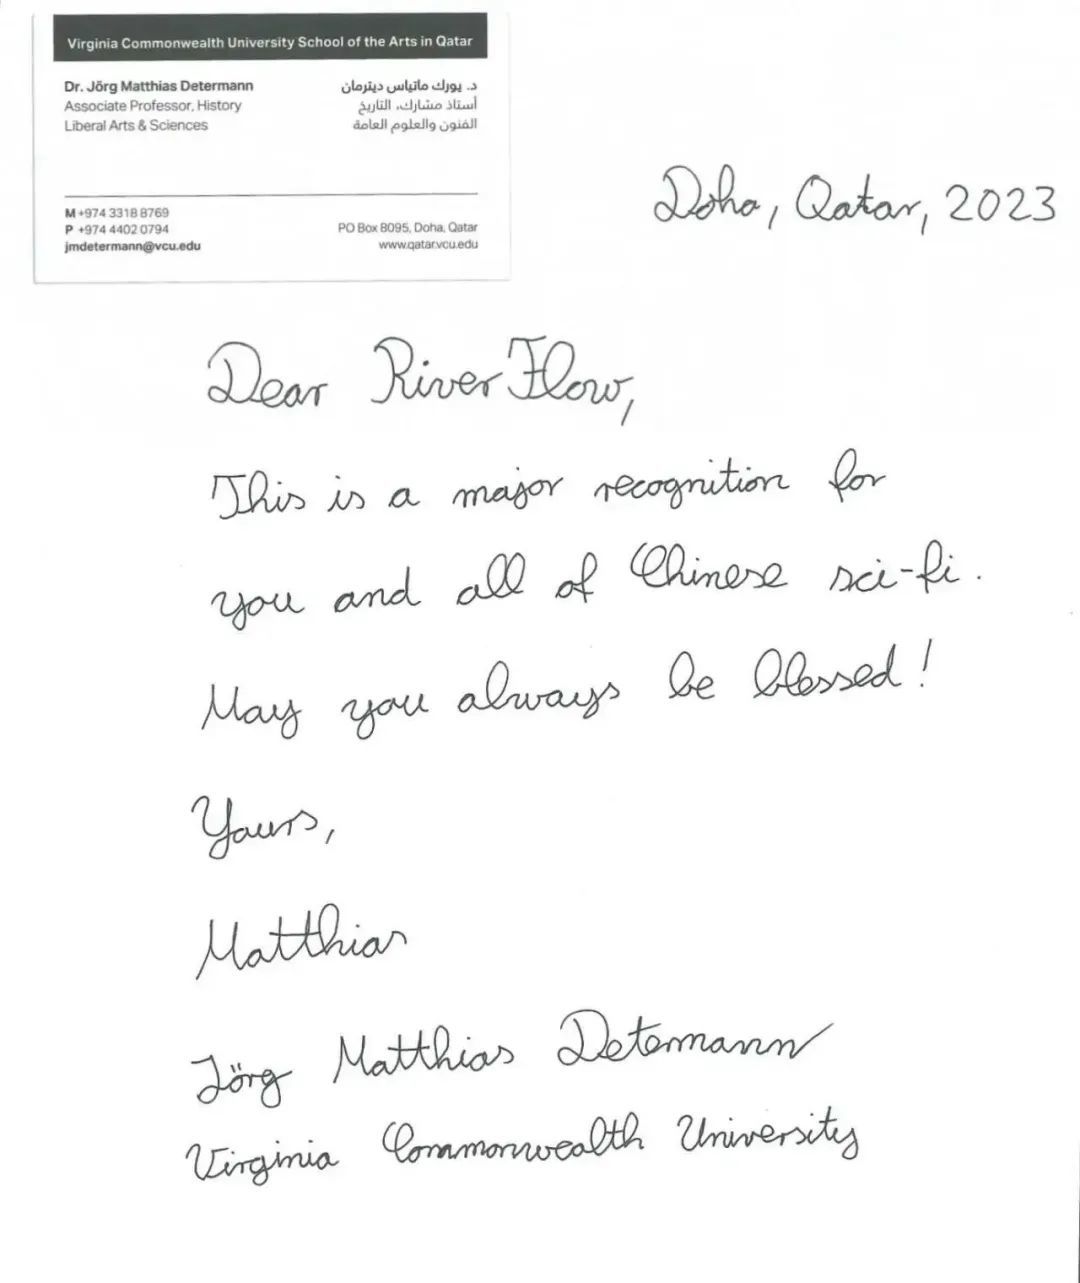 Virginia Commonwealth University School of the Arts in Qatar
Dr. Jörg Matthias Determann
Associate Professor, History
Liberal Arts & Sciences
د. يورك ماتياس ديترمان
أستاذ مشارك، التاريخ
الفنون والعلوم العامة
M +974 3318 8769
P +974 4402 0794
jmdetermann@vcu.edu
PO Box 8095, Doha, Qatar
www.qatar.vcu.edu
Doha, Qatar, 2023
Dear RiverFlow,
This is a major recognition for
you and all of Chinese sci-fi.
May you always be blessed!
Yours,
Matthias
Jörg Matthias Determann
Virginia Commonwealth University